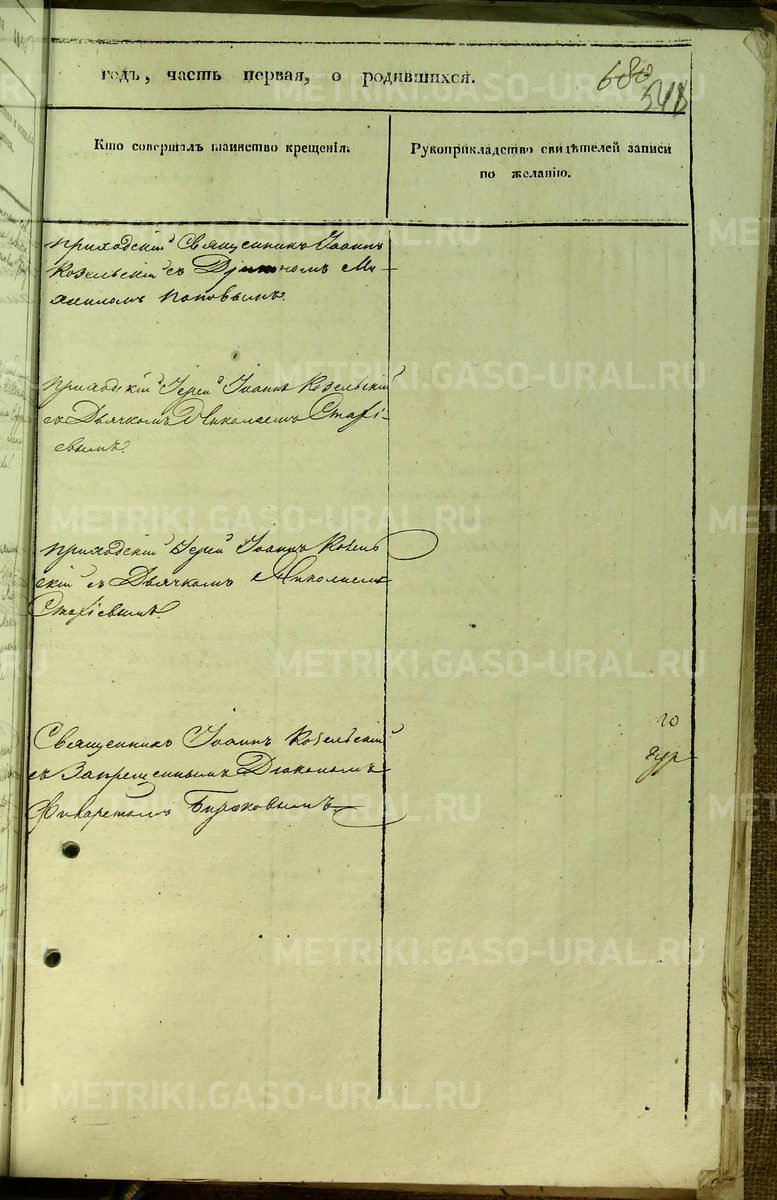 годъ, часть первая, о родившихся.
680
548
Кто совершалъ таинство крещенія.
Рукоприкладство свидѣтелей записи
по желанію.
Приходскій Священникъ Іоаннъ
Козельскій съ Дьячкомъ Ми-
хаиломъ Поповымъ.
Приходскій Іерей Іоаннъ Козельскій
съ Дьячкомъ Николаемъ Стафі-
евымъ.
Приходскій Іерей Іоаннъ Козель
скій съ Дьячкомъ Николаемъ
Стафіевымъ.
Священникъ Іоаннъ Козельскій
съ Запрещеннымъ Діакономъ
Филаретомъ Бирюковымъ
METRIKI.GASO-URAL.RU